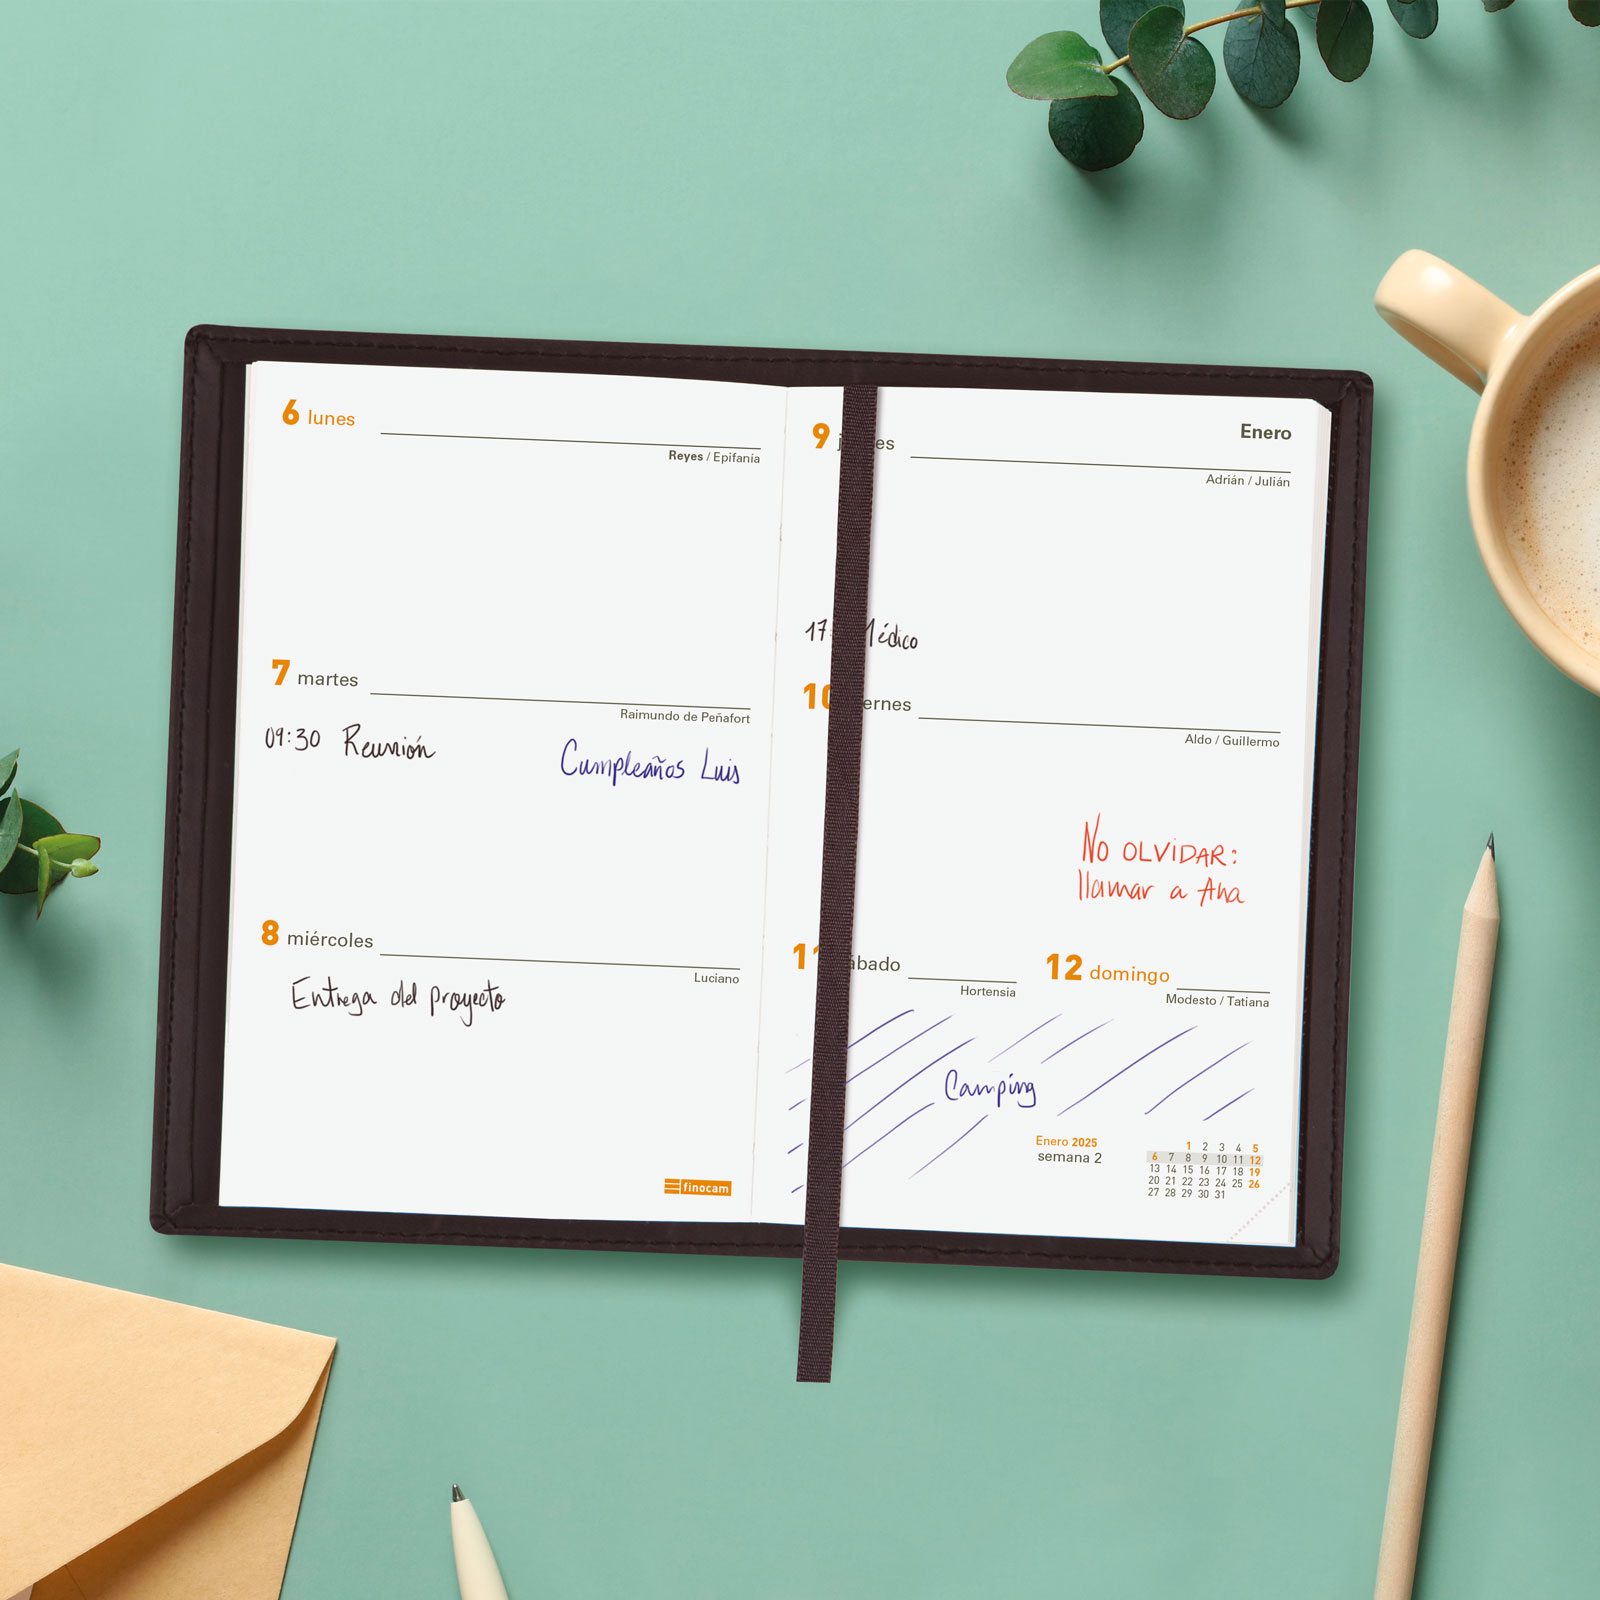 6 lunes
Reyes / Epifanía
7 martes
Raimundo de Peñafort
09:30 Reunión
Cumpleaños Luis
8 miércoles
Luciano
Entrega del proyecto
finocam
Enero
9
Adrián / Julián
17: Médico
10
Aldo / Guillermo
No OLVIDAR:
llamar a Ana
11
Hortensia
12 domingo
Modesto / Tatiana
Camping
Enero 2025
semana 2
1 2 3 4 5
6 7 8 9 10 11 12
13 14 15 16 17 18 19
20 21 22 23 24 25 26
27 28 29 30 31